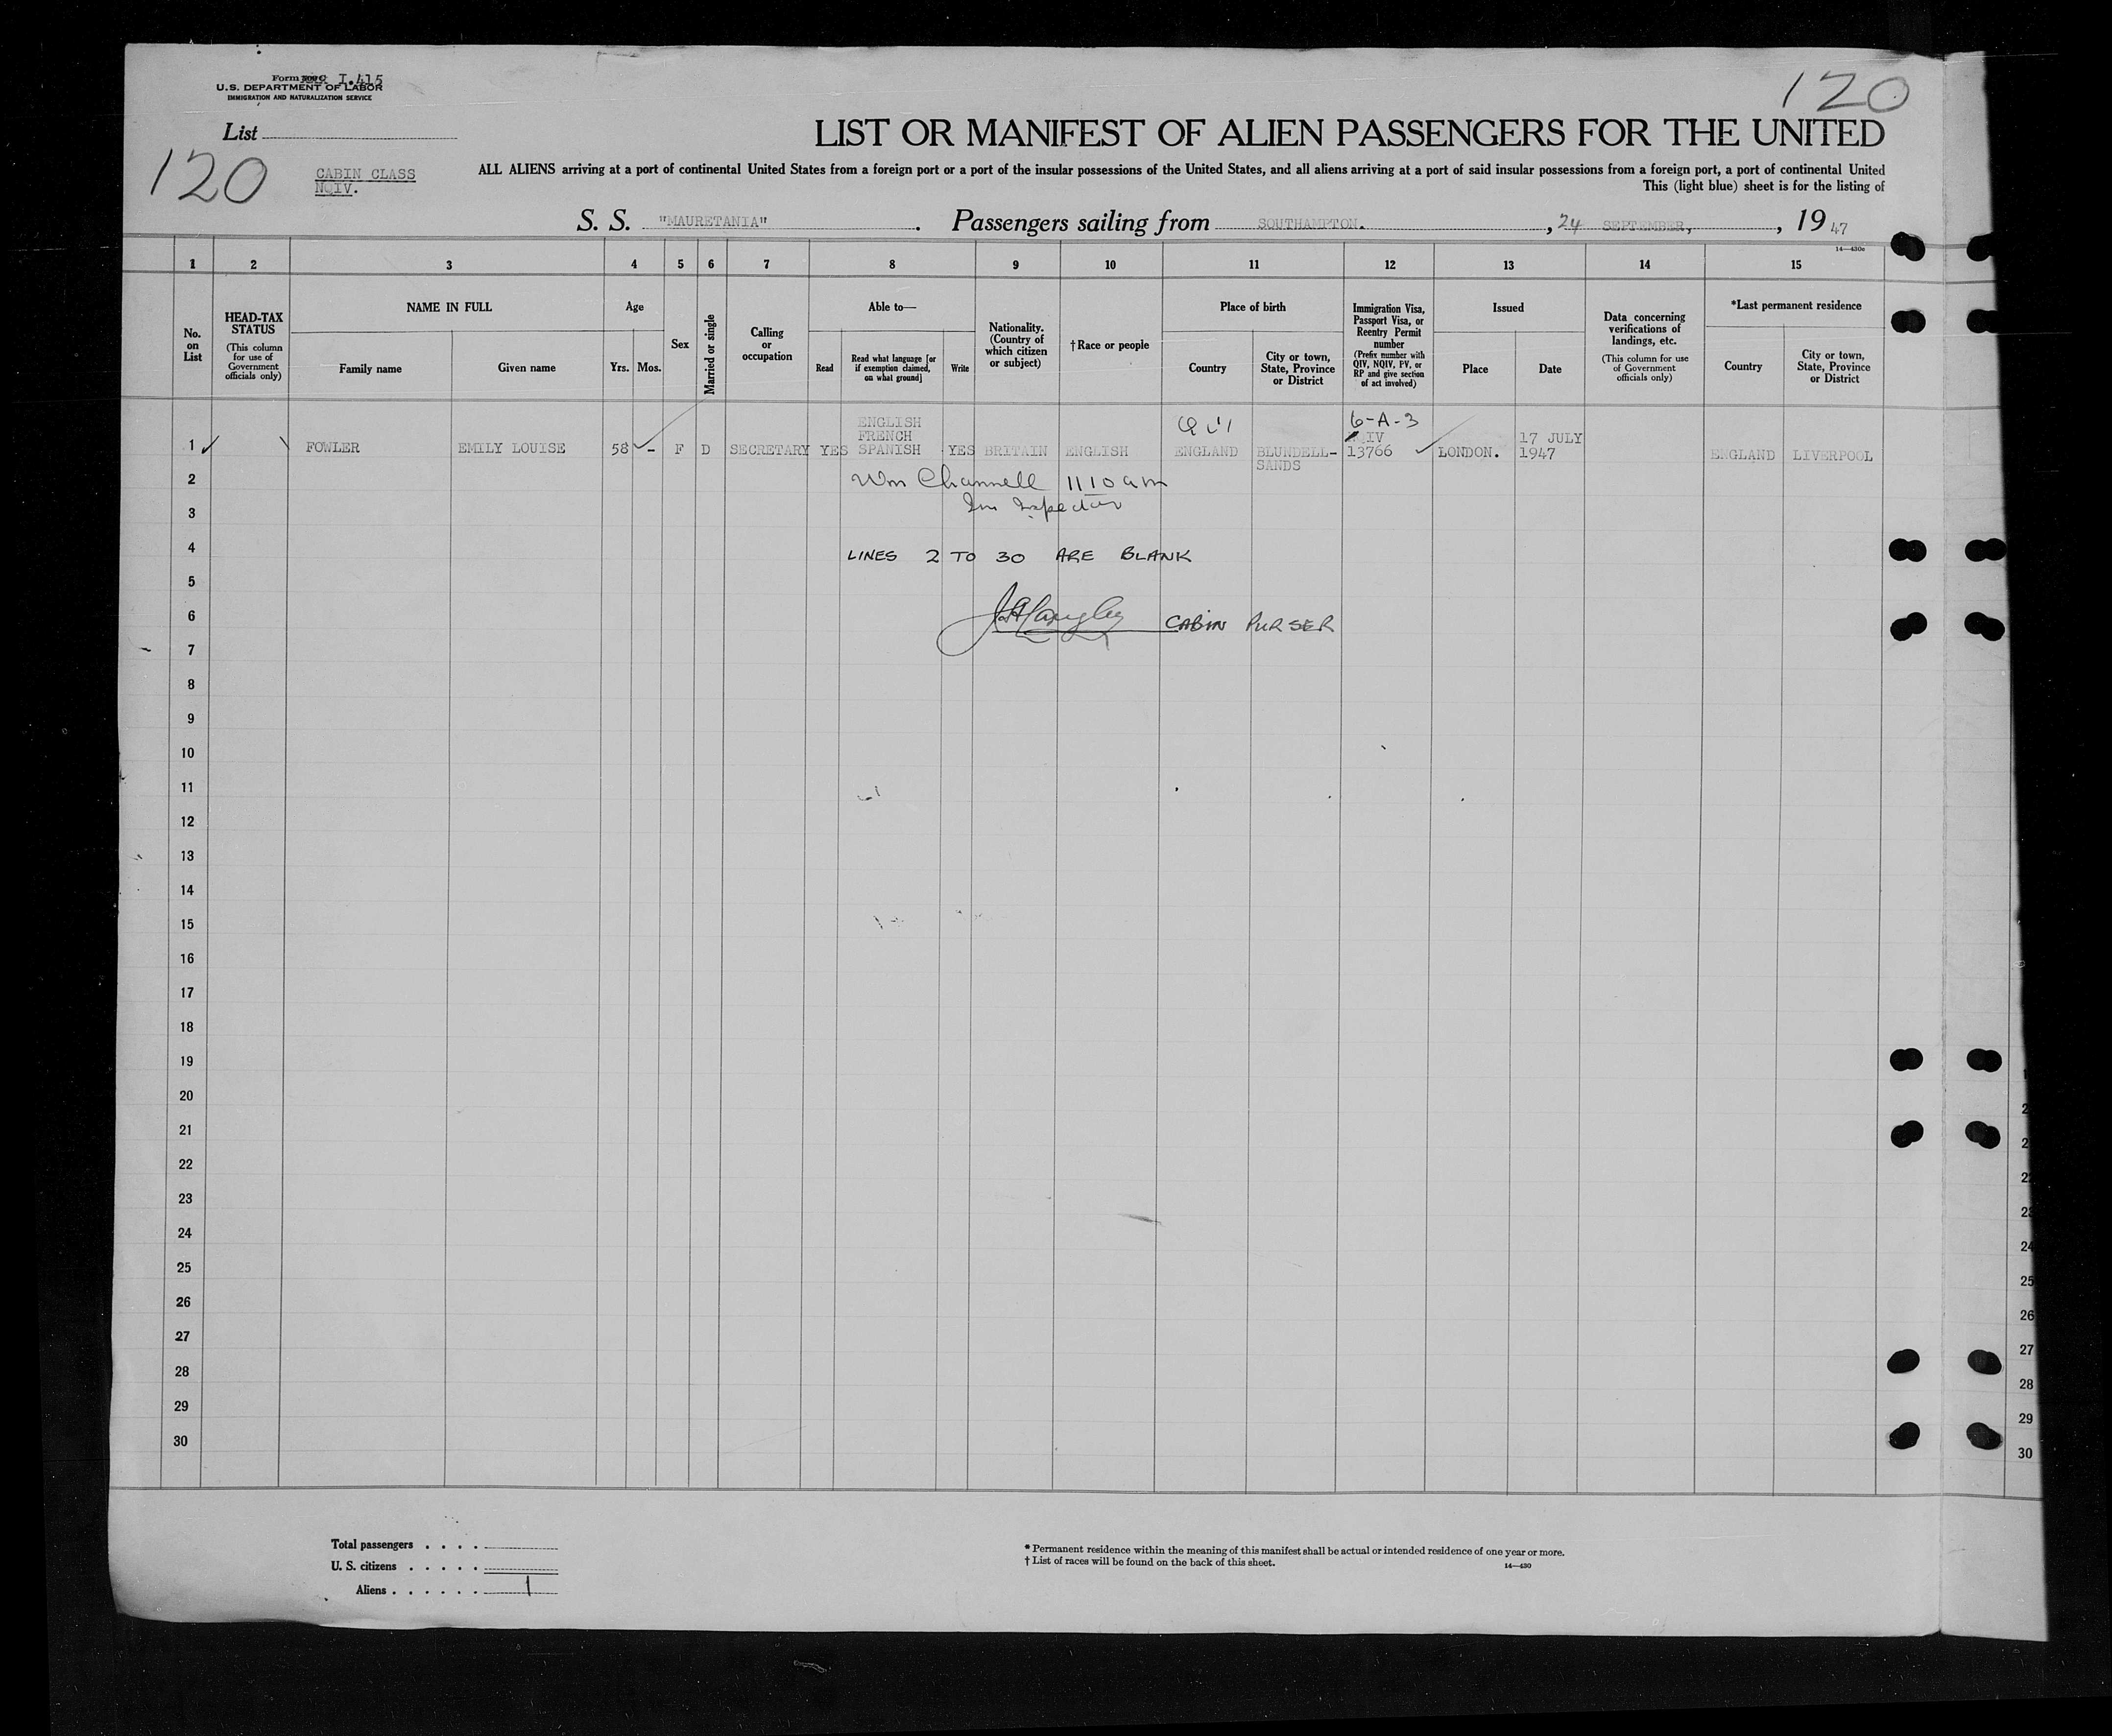 Form I.415
U.S. DEPARTMENT OF LABOR
IMMIGRATION AND NATURALIZATION SERVICE
120
List
120
CABIN CLASS
NQIV.
LIST OR MANIFEST OF ALIEN PASSENGERS FOR THE UNITED
ALL ALIENS arriving at a port of continental United States from a foreign port or a port of the insular possessions of the United States, and all aliens arriving at a port of said insular possessions from a foreign port, a port of continental United
This (light blue) sheet is for the listing of
S. S. "MAURETANIA". Passengers sailing from SOUTHAMPTON. , 24 SEPTEMBER, , 19 47
14—430c
1 2 3 4 5 6 7 8 9 10 11 12 13 14 15
No. on List
HEAD-TAX STATUS
(This column for use of Government officials only)
NAME IN FULL
Family name
Given name
Age
Yrs. Mos.
Sex
Married or single
Calling or occupation
Able to—
Read
Read what language [or if exemption claimed, on what ground]
Write
Nationality. (Country of which citizen or subject)
†Race or people
Place of birth
Country
City or town, State, Province or District
Immigration Visa, Passport Visa, or Reentry Permit number
(Prefix number with QIV, NQIV, PV, or RP and give section of act involved)
Issued
Place
Date
Data concerning verifications of landings, etc.
(This column for use of Government officials only)
*Last permanent residence
Country
City or town, State, Province or District
1 FOWLER EMILY LOUISE 58 - F D SECRETARY YES ENGLISH FRENCH SPANISH YES BRITAIN ENGLISH ENGLAND BLUNDELL-SANDS 6-A-3 IV 13766 LONDON. 17 JULY 1947 ENGLAND LIVERPOOL
2 Wm Channell 1110 am
3 Im Inspector
4 LINES 2 TO 30 ARE BLANK
5
6 CABIN PURSER
7
8
9
10
11
12
13
14
15
16
17
18
19
20
21
22
23
24
25
26
27
28
29
30
2
2
22
23
24
25
26
27
28
29
30
Total passengers . . . .
U. S. citizens . . . . .
Aliens . . . . . . 1
* Permanent residence within the meaning of this manifest shall be actual or intended residence of one year or more.
† List of races will be found on the back of this sheet.
14—430